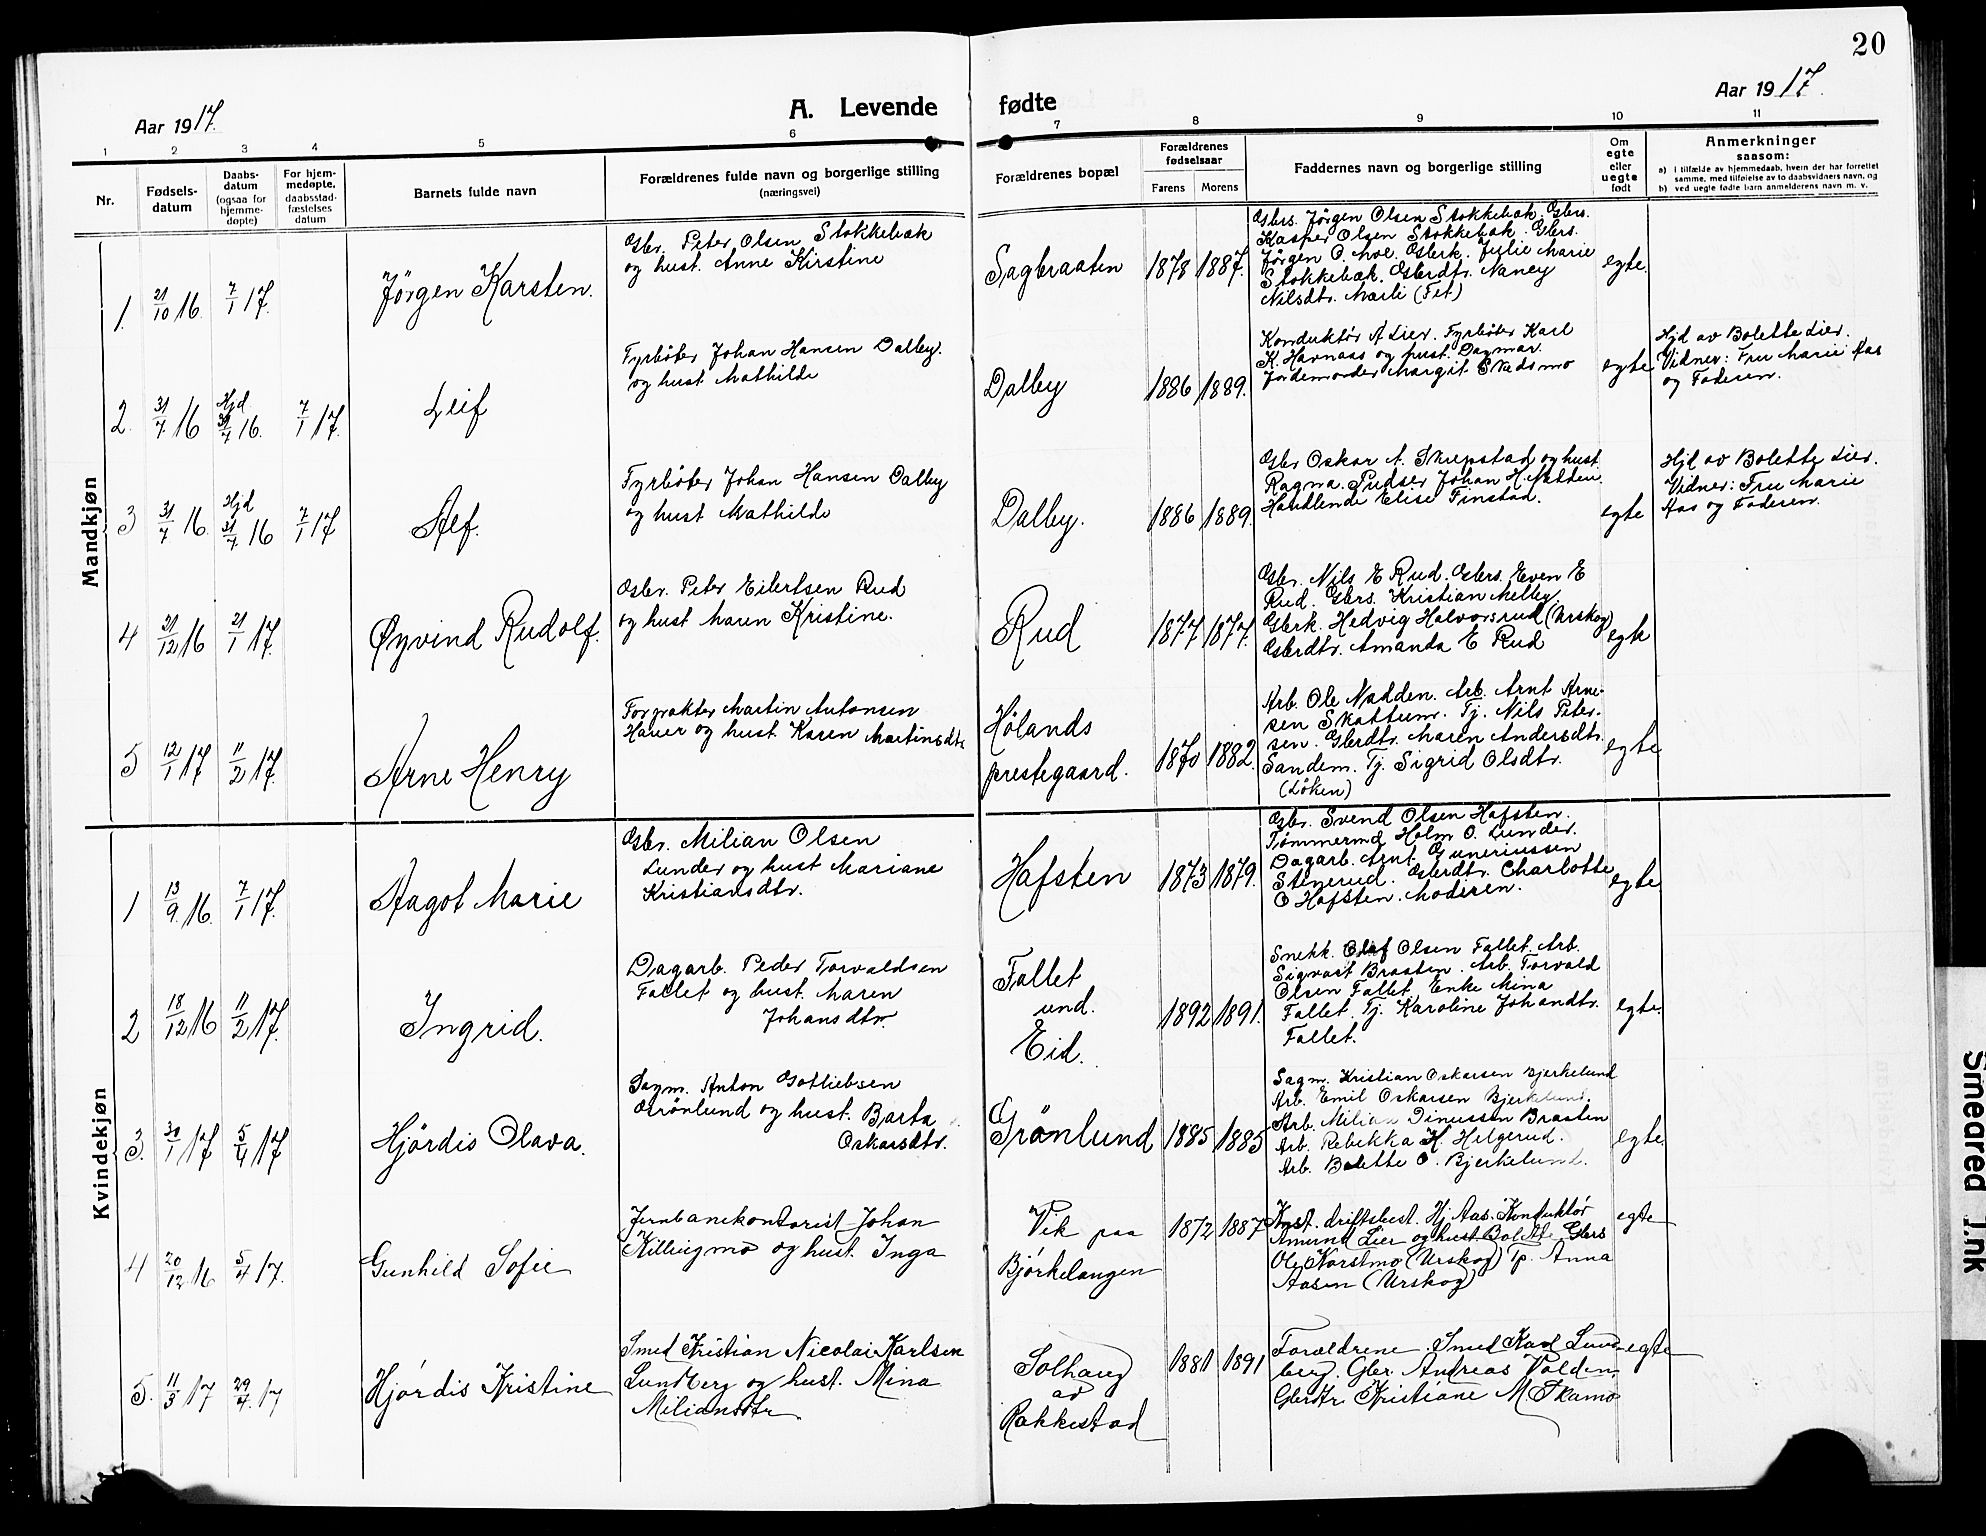 20
Aar 1917.
A. Levende
fødte
Aar 1917.
1 2 3 4 5 6 7 8 9 10 11
Nr.
Fødsels-
datum
Daabs-
datum
(ogsaa for
hjemme-
døpte)
For hjem-
medøpte,
daabsstad-
fæstelses
datum
Barnets fulde navn
Forældrenes fulde navn og borgerlige stilling
(næringsvei)
Forældrenes bopæl
Forældrenes
fødselsaar
Farens Morens
Faddernes navn og borgerlige stilling
Om
egte
eller
uegte
født
Anmerkninger
saasom:
a) i tilfælde av hjemmedaab, hvem der har forrettet
samme, med tilføielse av to daabsvidners navn, og
b) ved uegte fødte barn anmelderens navn m. v.
Mandkjøn
1. 21/10 16. 7/1 17. Jörgen Karsten.
Gbr. Peter Olsen Stokkebæk
og hust. Anne Kirstine
Sagbraaten 1878 1887.
Gbrs. Jörgen Olsen Stokkebæk. Gbrs.
Kasper Olsen Stokkebæk. Gbrs.
Jörgen O. Moe. Gbrk. Julie Marie
Stokkebæk. Gbrdtr. Nancy
Nilsdtr. Mæli (Fet)
egte.
2. 31/7 16 Hjd 31/7 16. 7/1 17. Leif
Fyrböter Johan Hansen Dalby.
og hust Mathilde
Dalby 1886 1889.
Konduktör A Lier. Fyrböter Karl
K. Havnaas og hust. Dagmar.
Jordemoder Margit Skedsmo
egte
Hjd av Bolette Lier.
Vidner: Fru Marie Aas
og Faderen.
3 31/7 16. Hjd 31/7 16 7/1 17 Alf.
Fyrböter Johan Hansen Dalby
og hust Mathilde
Dalby. 1886 1889.
Gbr Oskar A. Skrepstad og hust.
Ragna. Pudser Johan H. Nadden.
Handlende Elise Finstad.
egte
Hjd av Bolette Lier.
Vidner: Fru Marie
Aas og Faderen.
4 21/12 16 21/1 17. Øyvind Rudolf.
Gbr. Peter Eilertsen Rud
og hust Maren Kristine.
Rud 1877 1877.
Gbr. Nils E Rud. Gbrs. Even E
Rud. Gbrs. Kristian Melby.
Gbrk. Hedvig Halvorsrud (Urskog)
Gbrdtr. Amanda E Rud
egte
5 12/1 17 11/2 17. Arne Henry
Forpakter Martin Antonsen
Hauer og hust. Karen Martinsdtr.
Hölands
prestegaard. 1870 1882.
Arb. Ole Nadden. Arb. Arnt Arne-
sen Skattum. Tj. Nils Peter-
sen. Gbrdtr. Maren Andersdtr.
Sandem. Tj. Sigrid Olsdtr.
(Löken)
egte
Kvindekjøn
1 13/9 16. 7/1 17. Aagot Marie
Gbr. Milian Olsen
Lunder og hust Mariane
Kristiansdtr.
Hafsten 1873 1879.
Gbr. Svend Olsen Hafsten.
Tömmermd Holm O. Lunder.
Dagarb. Arnt Guneriussen
Stenerud. Gbrdtr. Charlotte
O Hafsten. Moderen.
egte
2 18/12 16 11/2 17. Ingrid.
Dagarb. Peder Torvaldsen
Fallet og hust. Maren
Johansdtr.
Fallet
und.
Eid. 1892 1891.
Snekk. Olaf Olsen Fallet. Arb.
Sigvart Braaten. Arb. Torvald
Olsen Fallet. Enke Mina
Fallet. Tj. Karoline Johandtr.
Fallet.
egte.
3. 30/1 17 5/4 17 Hjördis Olava.
Sagm. Anton Gotliebsen
Grönlund og hust. Barta
Oskarsdtr.
Grönlund 1885 1885
Sagm. Kristian Oskarsen Bjerkelund
Arb. Emil Oskarsen Bjerkelund.
Arb. Milian Dinussen Braaten
Arb. Rebekka H. Helgerud.
Arb. Bolette O. Bjerkelund.
egte.
4 20/12 16 5/4 17. Gunhild Sofie
Jernbanekontorist Johan
Killingmo og hust. Inga
Vik paa
Björkelangen 1872 1887
Kst. driftsbest. Hj Aas. Konduktör
Amund Lier og hust Bolette. Gbrs
Ole Korstmo (Urskog) Tp. Anna
Aasen (Urskog)
egte
5. 11/3 17 29/4 17 Hjördis Kristine
Smed Kristian Nicolai Karlsen
Lundberg og hust. Mina
Miliansdtr.
Solhaug
av
Rakkestad 1881 1891
Forældrene. Smed Karl Lund-
berg. Gbr. Andreas Volden.
Gbrdtr. Kristiane M. Skamo
egte
Smeared Ink